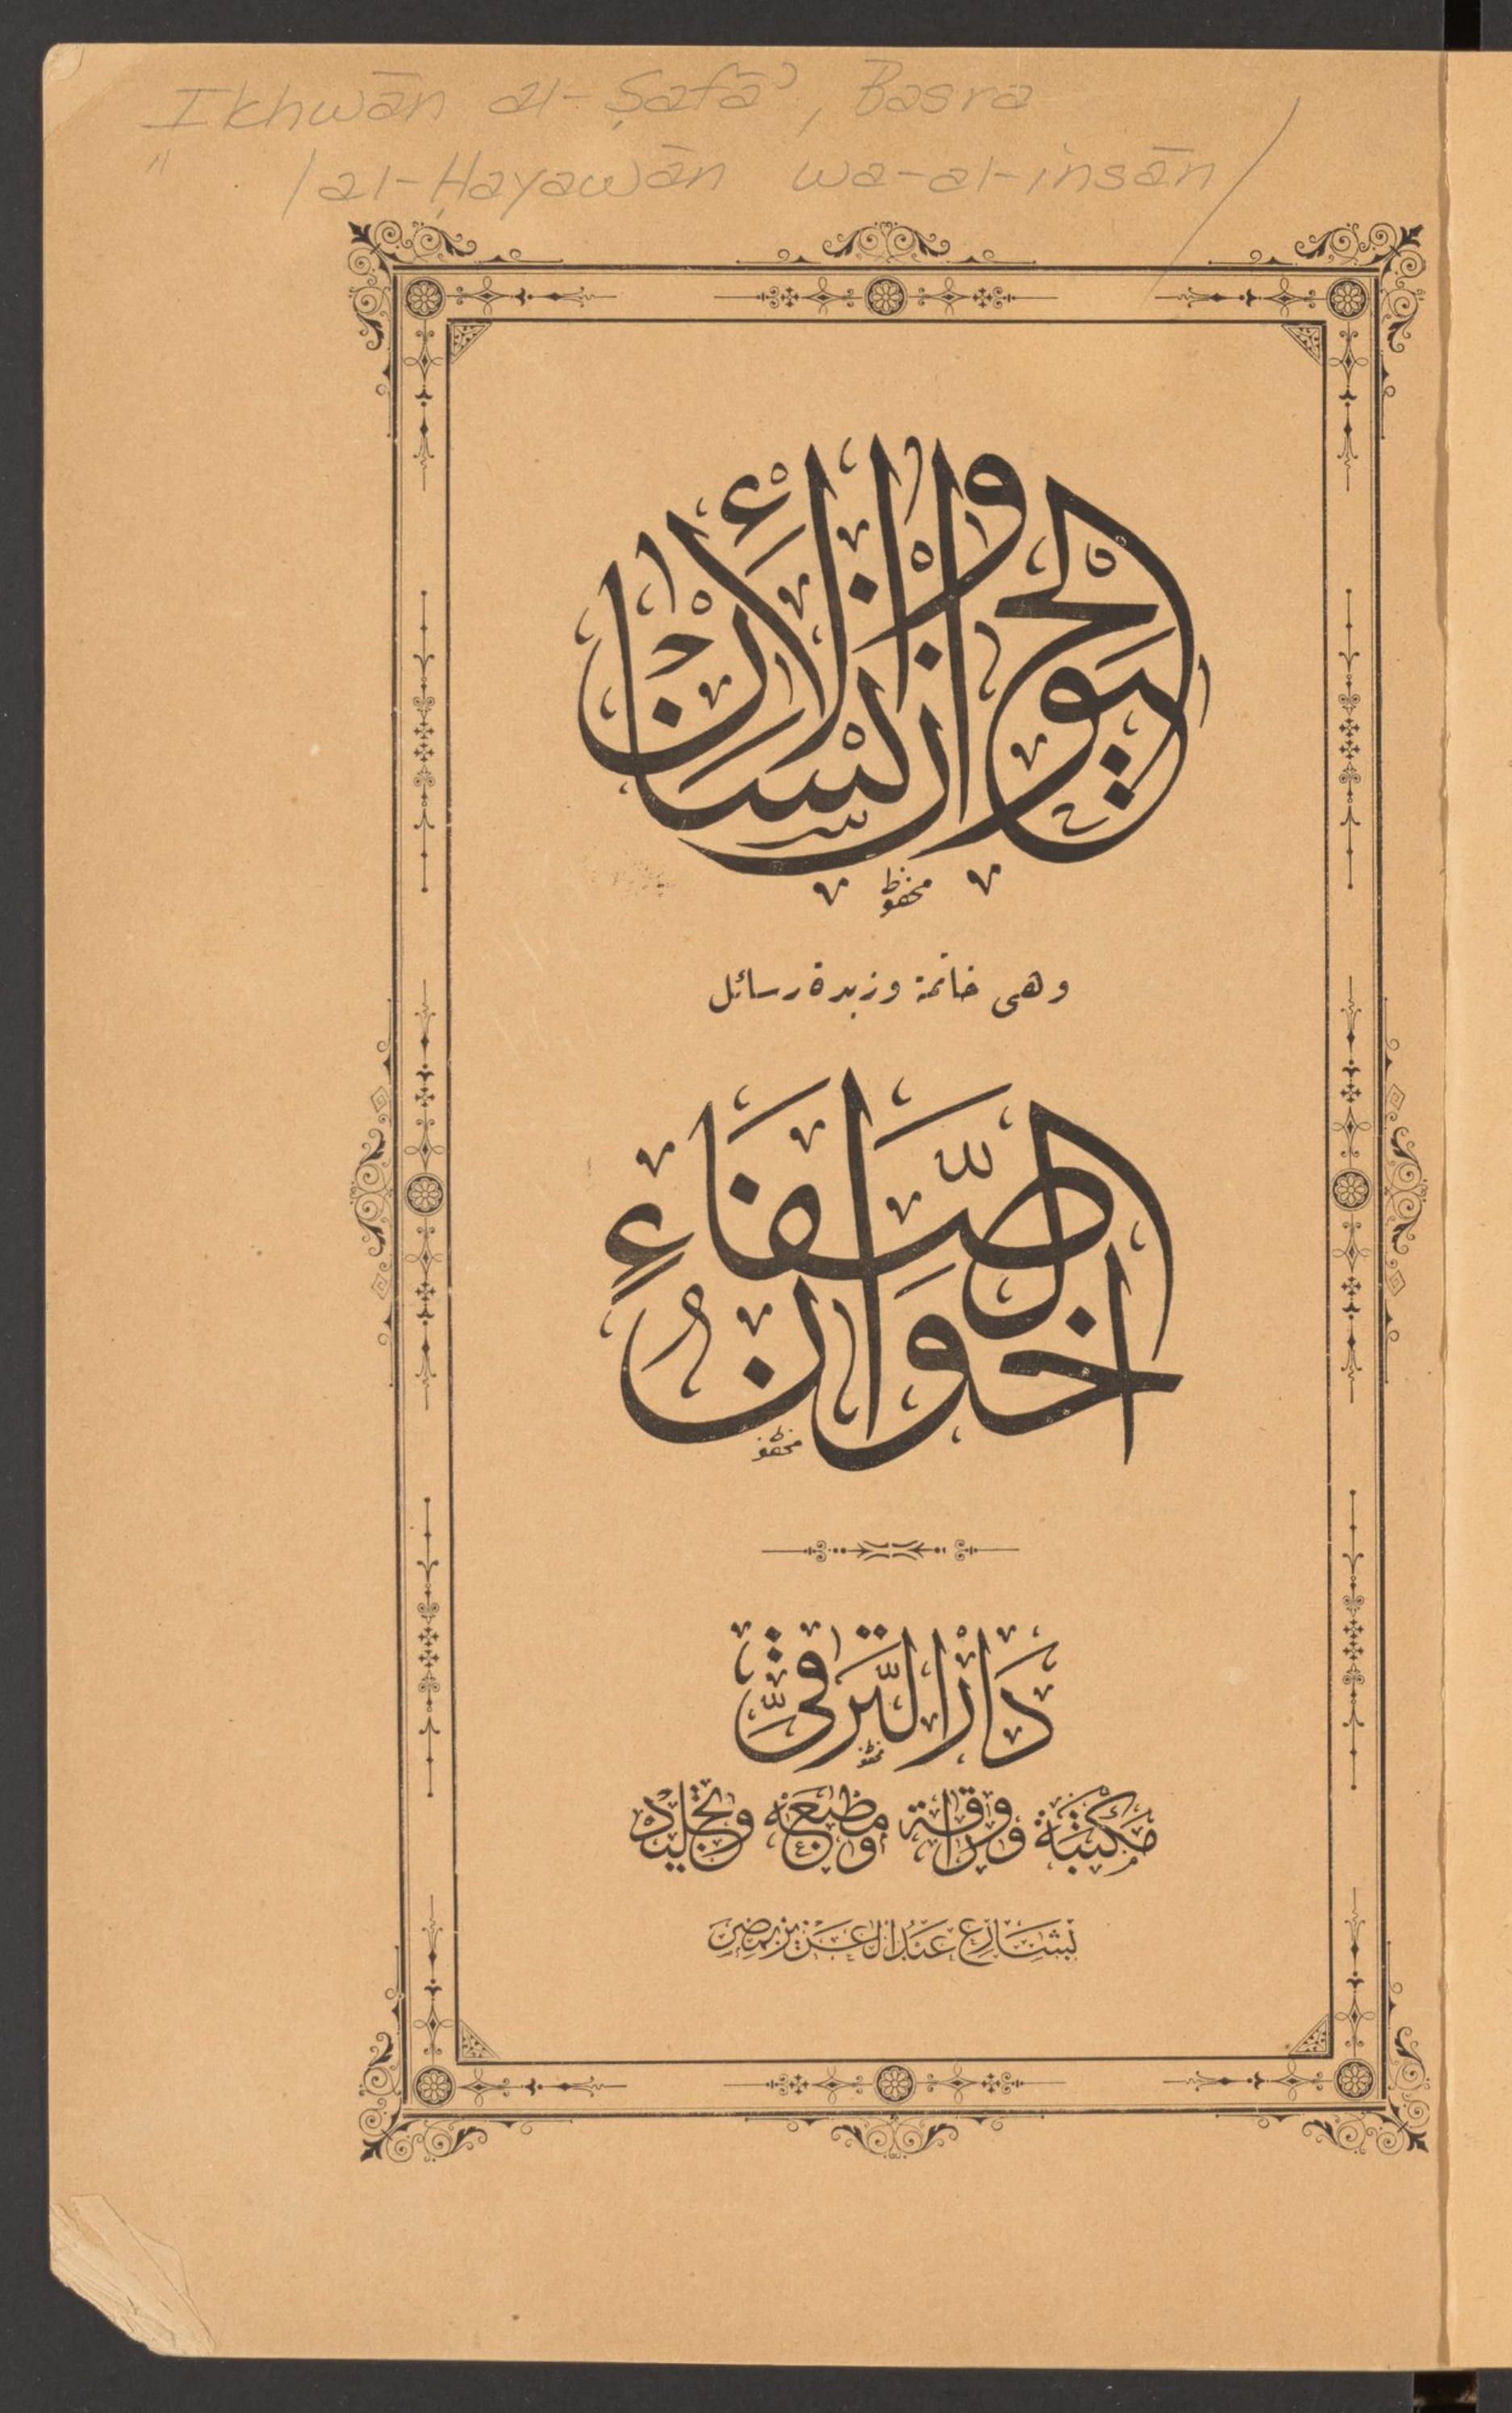 Ikhwān al-Ṣafāʾ, Basra
" /al-Ḥayawān wa-al-insān/
الحيوان والإنسان
محفوظ
وهى خاتمة وزبدة رسائل
اخوان الصفاء
محفوظ
دار الترقي
محفوظ
مكتبة ووراقة ومطبعة وتجليد
بشارع عبد العزيز بمصر